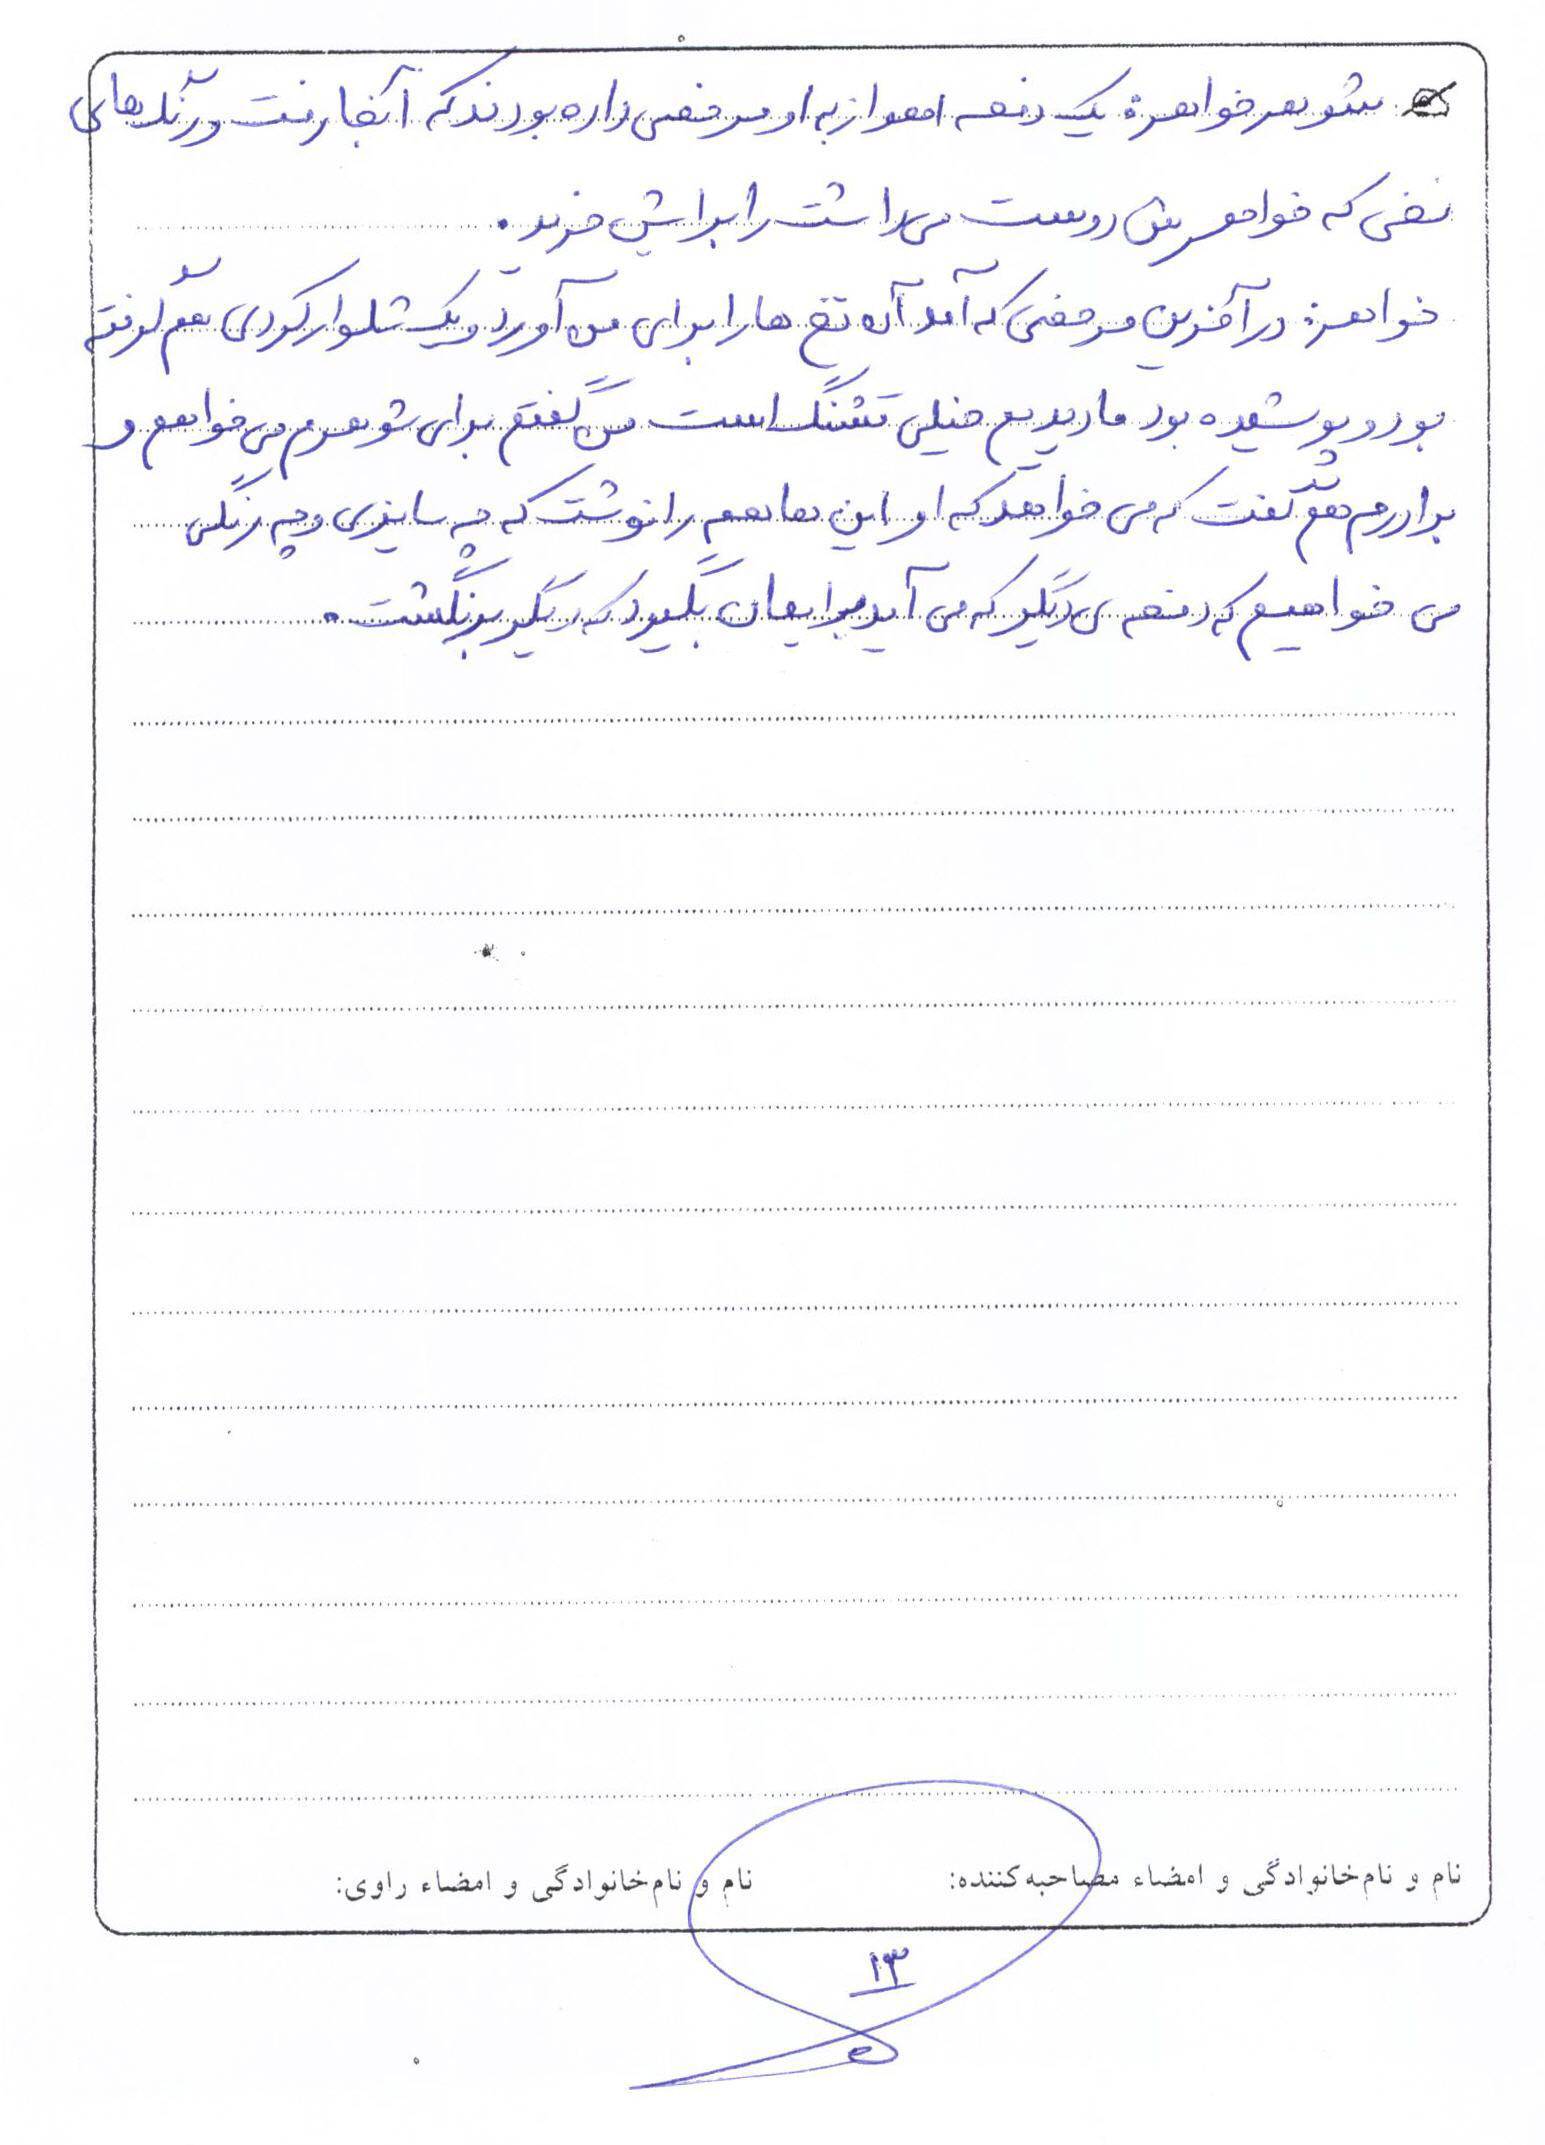 شوهر خواهر: یک دفعه اهواز به او مرخصی داده بودند که آنجا رفت و رنگ های
نخی که خواهرش دوست می داشت را برایش خرید.
خواهر: در آخرین مرخصی که آمد آن نخ ها را برای من آورد و یک شلوار کردی هم گرفته
بود و پوشیده بود ما دیدیم خیلی قشنگ است من گفتم برای شوهرم می خواهم و
برادرم هم گفت که می خواهد که او این ها هم را نوشت که چه سایزی و چه رنگی
می خواهیم که دفعه ی دیگر که می آید برایمان بگیرد که دیگر برنگشت.
نام و نام‌خانوادگی و امضاء مصاحبه‌کننده: نام و نام‌خانوادگی و امضاء راوی:
۱۳